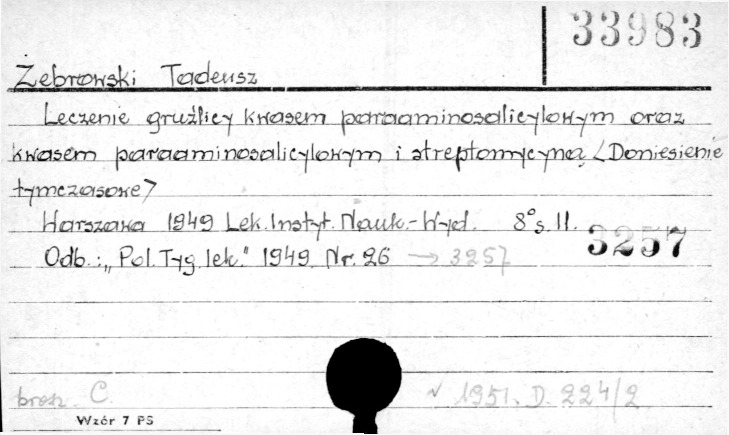 33983
Żebrowski Tadeusz
Leczenie gruźlicy kwasem paraaminosalicylowym oraz
kwasem paraaminosalicylowym i streptomycyną <Doniesienie
tymczasowe>
Warszawa 1949 Lek. Instyt. Nauk.-Wyd. 8° s. 11.
3257
Odb.: „Pol. Tyg. lek." 1949 Nr. 26 → 3257
brosz. C. √ 1951. D. 224/2
Wzór 7 PS